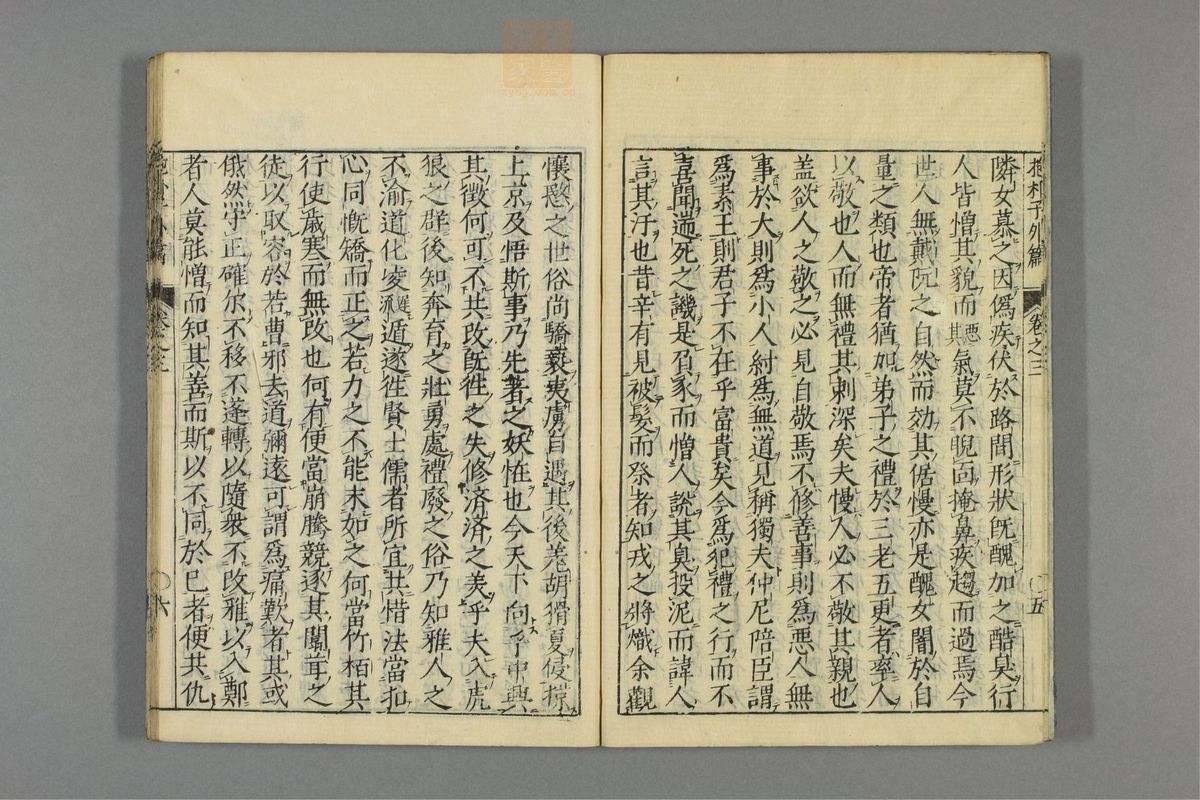 抱朴子外篇 卷之三 〇五
隣女慕之因僞疾伏於路間形狀既醜加之酷臭行
人皆憎其貌而惡其氣莫不睨面掩鼻疾趨而過焉今
世人無戴阮之自然而効其倨慢亦是醜女闇於自
量之類也帝者猶加弟子之禮於三老五更者率人
以敬也人而無禮其刺深矣夫慢人必不敬其親也
盖欲人之敬之必見自敬焉不修善事則爲惡人無
事於大則爲小人紂爲無道見稱獨夫仲尼陪臣謂
爲素王則君子不在乎富貴矣今爲犯禮之行而不
喜聞遄死之譏是負豕而憎人說其臭投泥而諱人
言其汙也昔辛有見被髮而祭者知戎之將熾余觀
懷愍之世俗尚驕褻夷虜自遇其後羗胡猾夏侵掠
上京及悟斯事乃先著之妖恠也今天下向平中興
其徵何可不共改旣徃之失修済済之美乎夫入虎
狼之群後知奔育之壯勇處禮廢之俗乃知雅人之
不渝道化凌遲流遁遂徃賢士儒者所宜共惜法當扣
心同慨矯而正之若力之不能末如之何當竹栢其
行使歲寒而無改也何有便當崩騰競逐其闒茸之
徒以取容於若曹邪去道彌遠可謂爲痛歎者其或
俄然守正確尔不移不蓬轉以隨衆不改雅以入鄭
者人莫能憎而知其善而斯以不同於已者便共仇